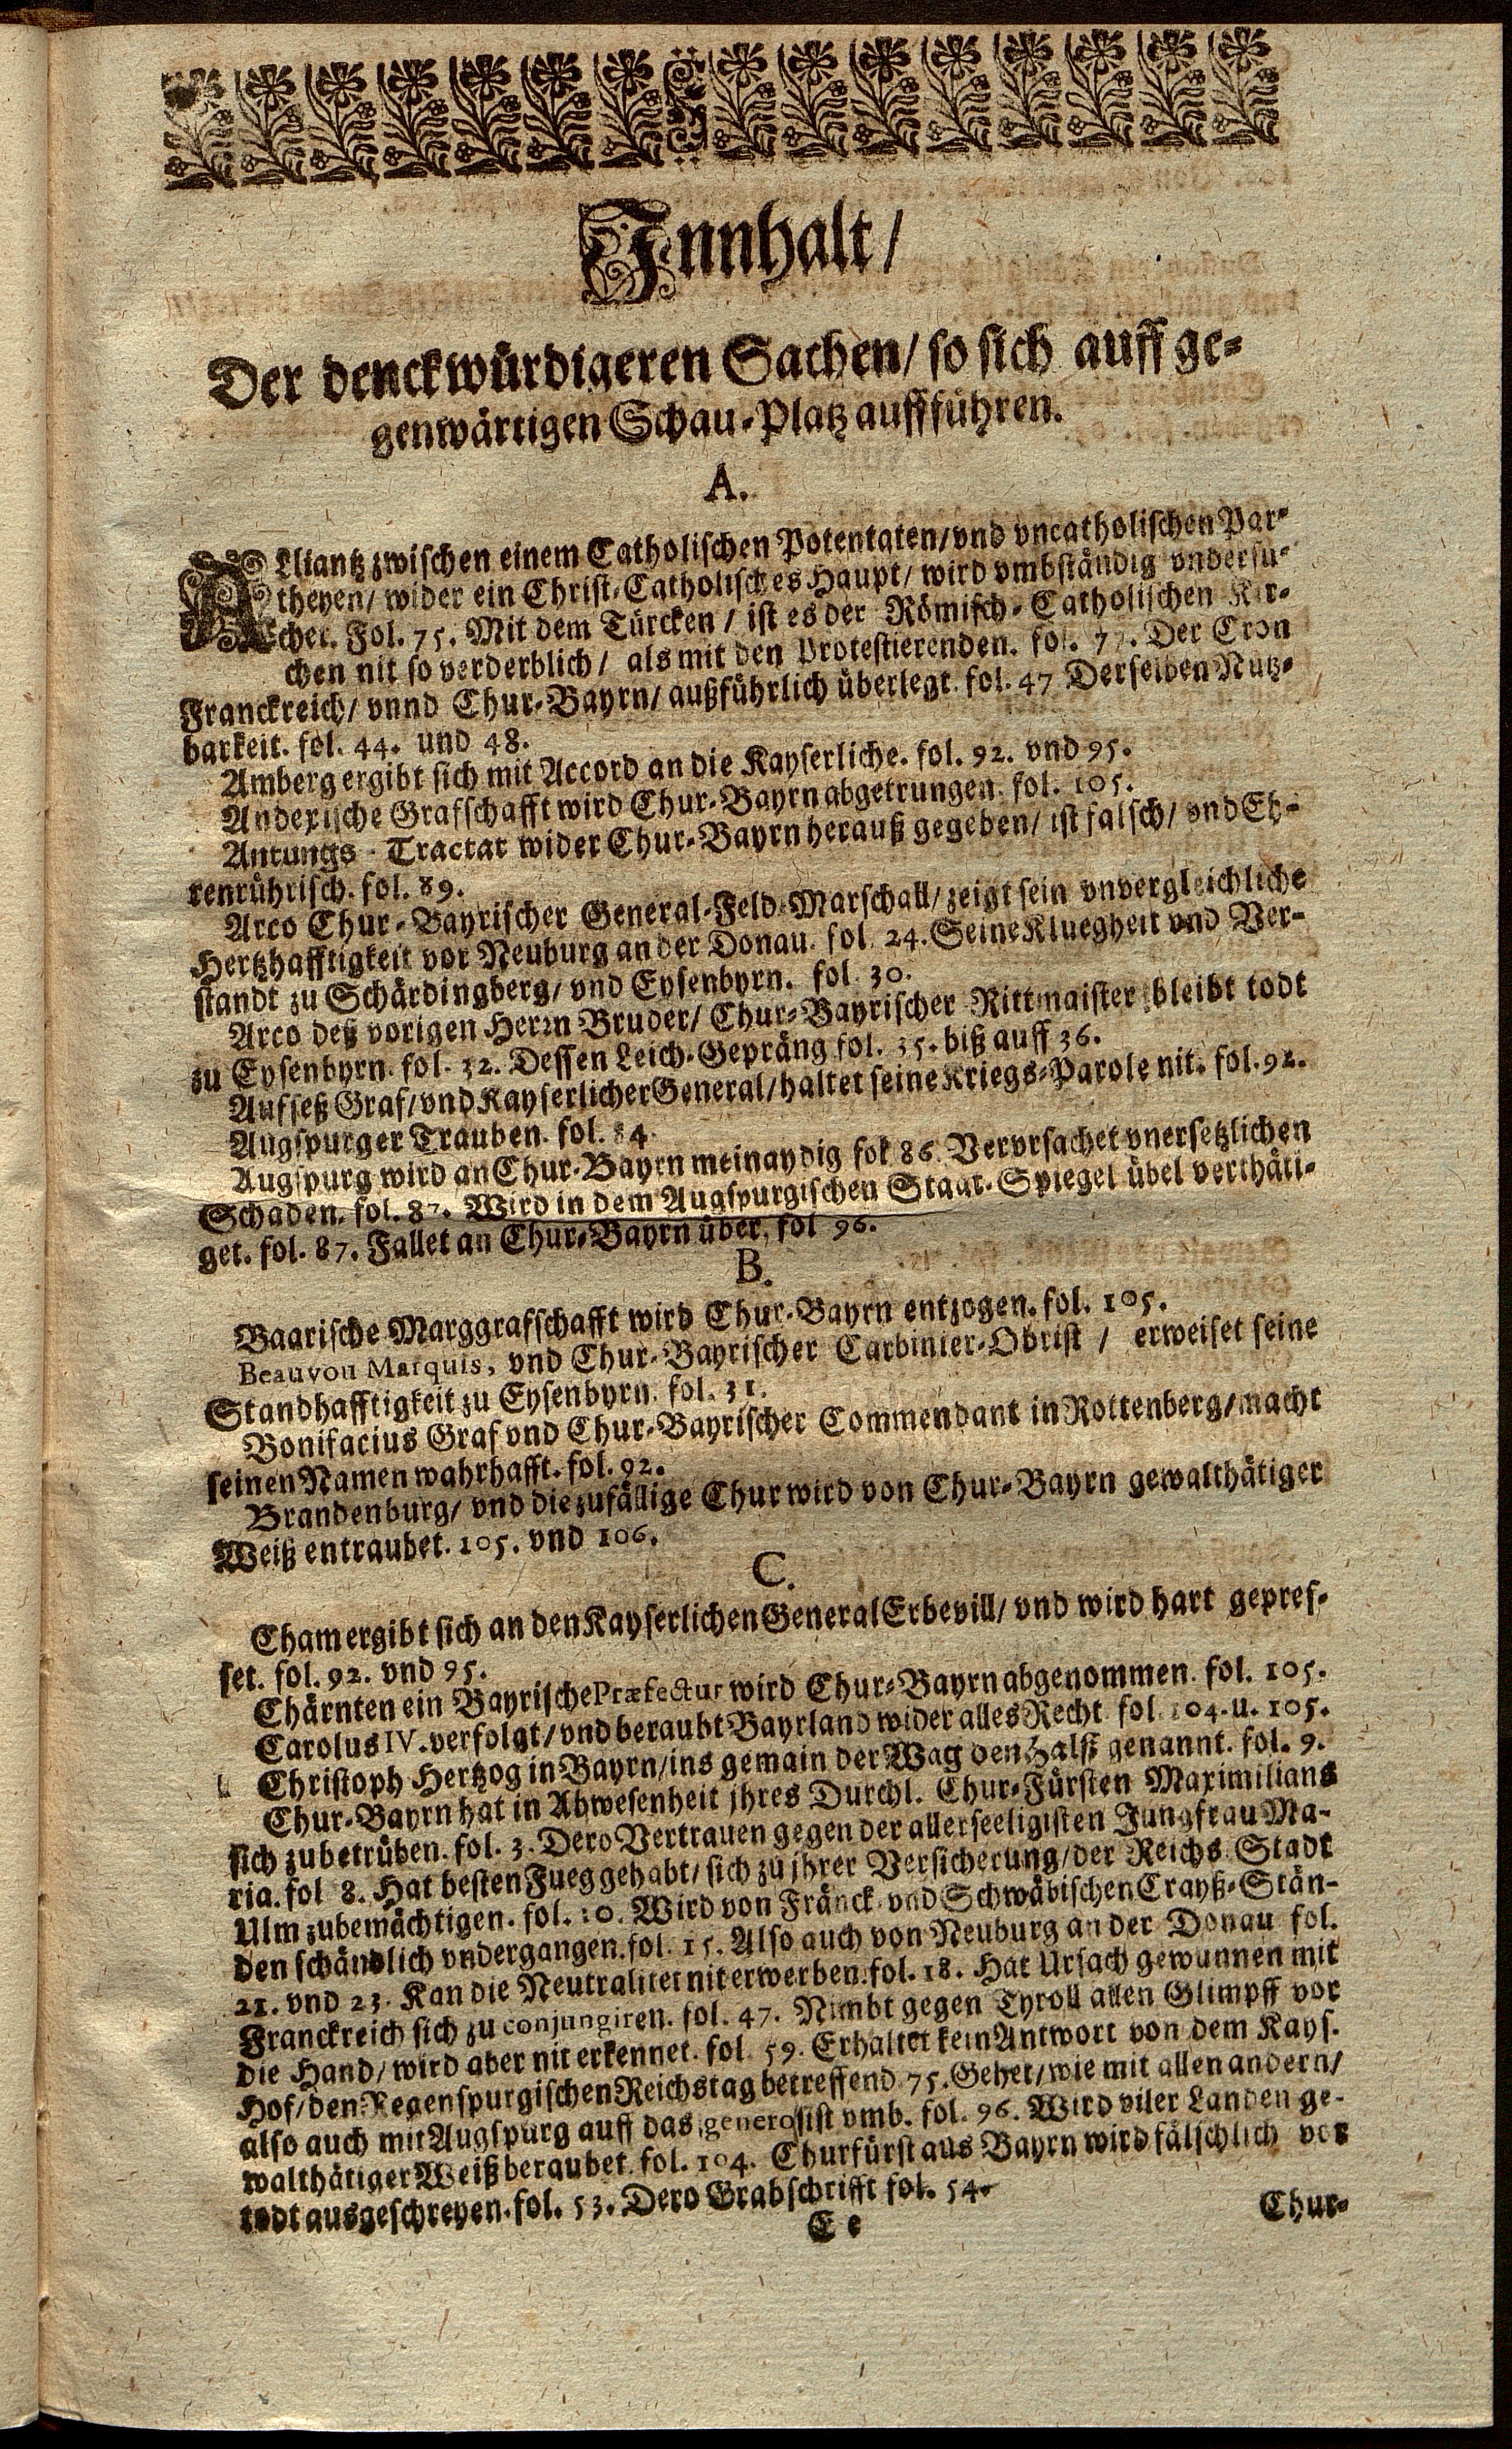 Innhalt/
Der denckwürdigeren Sachen/ so sich auff ge-
genwärtigen Schau-Platz auffführen.
A.
ALliantz zwischen einem Catholischen Potentaten/ vnd vncatholischen Par-
theyen/ wider ein Christ-Catholisches Haupt/ wird vmbständig vndersu-
chet. Fol. 75. Mit dem Türcken / ist es der Römisch-Catholischen Kir-
chen nit so verderblich/ als mit den Protestierenden. fol. 77. Der Cron
Franckreich/ vnnd Chur-Bayrn/ außführlich überlegt. fol. 47 Derselben Nutz-
barkeit. fol. 44. und 48.
Amberg ergibt sich mit Accord an die Kayserliche. fol. 92. vnd 95.
Andexische Grafschafft wird Chur-Bayrn abgetrungen. fol. 105.
Antungs-Tractat wider Chur-Bayrn herauß gegeben/ ist falsch/ vnd Eh-
renrührisch. fol. 89.
Arco Chur-Bayrischer General-Feld-Marschall/ zeigt sein vnvergleichliche
Hertzhafftigkeit vor Neuburg an der Donau. fol. 24. Seine Kluegheit vnd Ver-
standt zu Schärdingberg/ vnd Eysenbyrn. fol. 30.
Arco deß vorigen Herrn Bruder/ Chur-Bayrischer Rittmaister bleibt todt
zu Eysenbyrn. fol. 32. Dessen Leich-Gepräng fol. 35. biß auff 36.
Aufseß Graf/ vnd Kayserlicher General/ haltet seine Kriegs-Parole nit. fol. 92.
Augspurger Trauben. fol. 84.
Augspurg wird an Chur-Bayrn meinaydig fol 86. Vervrsachet vnersetzlichen
Schaden. fol. 87. Wird in dem Augspurgischen Staat-Spiegel übel verthäti-
get. fol. 87. Fallet an Chur-Bayrn über, fol 96.
B.
Baarische Marggrafschafft wird Chur-Bayrn entzogen. fol. 105.
Beauvon Marquis, vnd Chur-Bayrischer Carbinier-Obrist / erweiset seine
Standhafftigkeit zu Eysenbyrn. fol. 31.
Bonifacius Graf vnd Chur-Bayrischer Commendant in Rottenberg/ macht
seinen Namen wahrhafft. fol. 92.
Brandenburg/ vnd die zufällige Chur wird von Chur-Bayrn gewalthätiger
Weiß entraubet. 105. vnd 106.
C.
Cham ergibt sich an den Kayserlichen General Erbevill/ vnd wird hart gepres-
set. fol. 92. vnd 95.
Chärnten ein Bayrische Præfectur wird Chur-Bayrn abgenommen. fol. 105.
Carolus IV. verfolgt/ vnd beraubt Bayrland wider alles Recht. fol. 104. u. 105.
Christoph Hertzog in Bayrn/ ins gemain der Wag den Halß genannt. fol. 9.
Chur-Bayrn hat in Abwesenheit jhres Durchl. Chur-Fürsten Maximilians
sich zubetrüben. fol. 3. Dero Vertrauen gegen der allerseeligisten Jungfrau Ma-
ria. fol 8. Hat besten Fueg gehabt/ sich zu jhrer Versicherung/ der Reichs-Stadt
Ulm zubemächtigen. fol. 10. Wird von Fränck- vnd Schwäbischen Crayß-Stän-
den schändlich vndergangen. fol. 15. Also auch von Neuburg an der Donau fol.
21. vnd 23. Kan die Neutralitet nit erwerben. fol. 18. Hat Ursach gewunnen mit
Franckreich sich zu conjungiren. fol. 47. Nimbt gegen Tyroll allen Glimpff vor
die Hand/ wird aber nit erkennet. fol. 59. Erhaltet kein Antwort von dem Kays.
Hof/ den Regenspurgischen Reichstag betreffend. 75. Gehet/ wie mit allen andern/
also auch mit Augspurg auff das generosist vmb. fol. 96. Wird viler Landen ge-
walthätiger Weiß beraubet. fol. 104. Churfürst aus Bayrn wird fälschlich vor
todt ausgeschreyen. fol. 53. Dero Grabschrifft fol. 54.
E e
Chur-